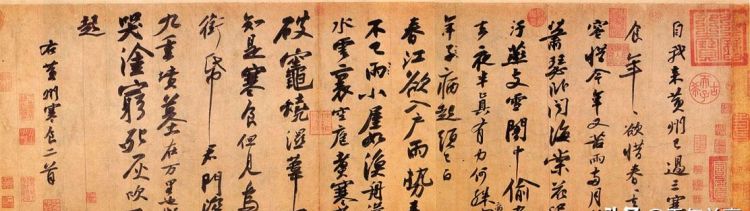 自我來黃州已過三寒
食年〻欲惜春〻去
容惜今年又苦雨兩月
蕭瑟卧聞海棠花泥
汙燕支雪闇中偷
去夜半真有力何殊
年子病起頭已白
春江欲入戶雨勢來
不已雨小屋如漁舟
水雲裏空庖煮寒
破竈燒濕葦
知是寒食但見烏
銜帋君門深
九重墳墓在万里
哭塗窮死灰吹
起
右黃州寒食二首